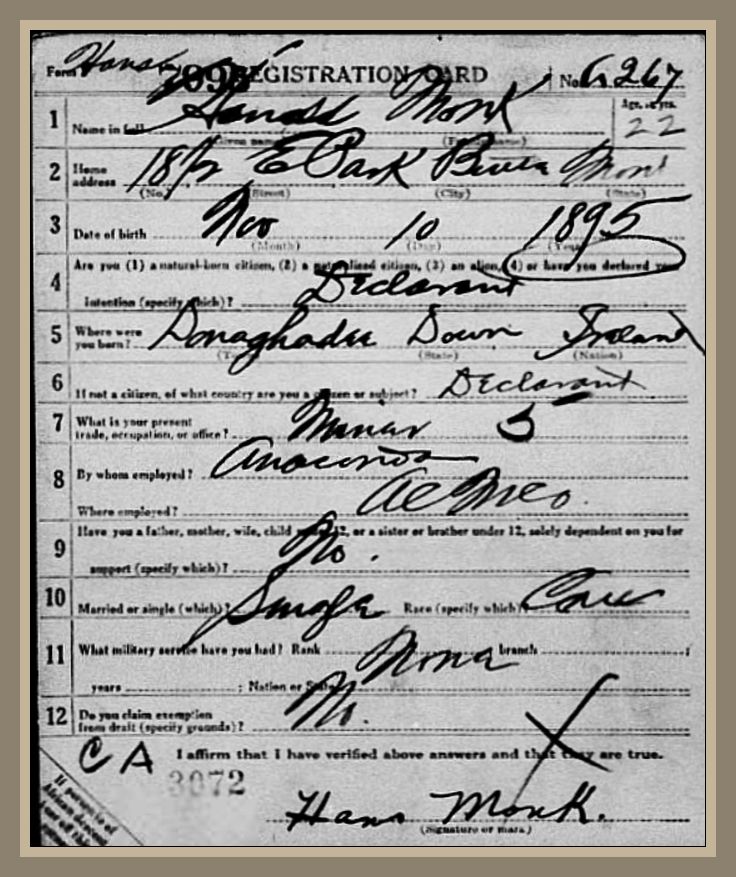 Form Hans 7098 REGISTRATION CARD No. 6267
1 Name in full Harold Monk Age, in yrs. 22
(Given name) (Family name)
2 Home address 18 1/2 E Park Butte Mont
(No.) (Street) (City) (State)
3 Date of birth Nov 10 1895
(Month) (Day) (Year)
4 Are you (1) a natural-born citizen, (2) a naturalized citizen, (3) an alien, (4) or have you declared your
intention (specify which)? Declarant
5 Where were you born? Donaghadee Down Ireland
(Town) (State) (Nation)
6 If not a citizen, of what country are you a citizen or subject? Declarant
7 What is your present
trade, occupation, or office? Miner 5
8 By whom employed? Anaconda
Where employed? AC M Co.
9 Have you a father, mother, wife, child under 12, or a sister or brother under 12, solely dependent on you for
support (specify which)? No.
10 Married or single (which)? Single Race (specify which)? Cau
11 What military service have you had? Rank None branch ;
years ; Nation or State
12 Do you claim exemption
from draft (specify grounds)? No.
C A I affirm that I have verified above answers and that they are true.
3072
If person is of
African descent
Hans Monk.
(Signature or mark)